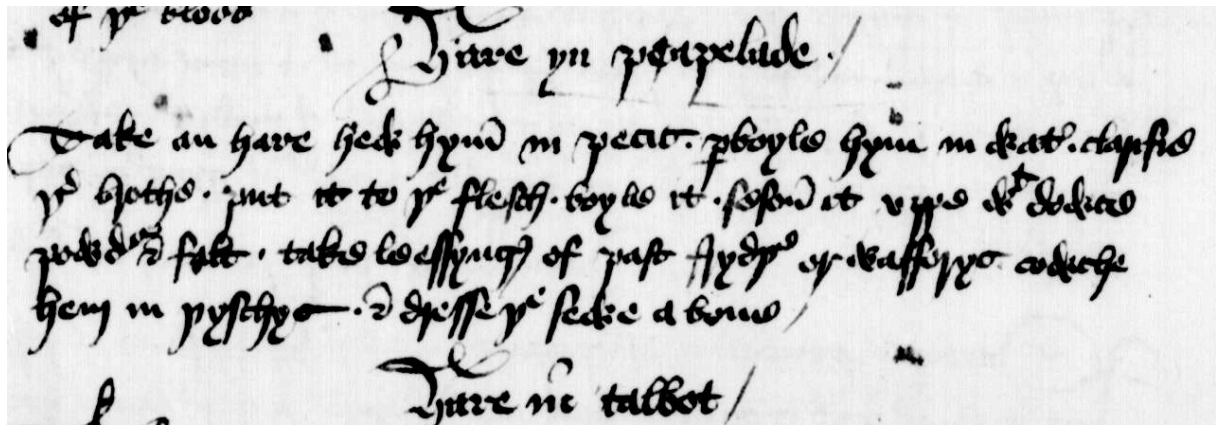 of þe blood
Hare yn papelade
Take an hare hew hym in pecis. ꝑboyle hym in wat̛. clansie
þe brothe. put it to þe flesch. boyle it. seson̄ it vppe wt dowce
powdr & salt. take leessyngꝭ of past fryd or wafferys. cowche
hem in dyschys. & dresse þe sewe a bove
Hare in talbot